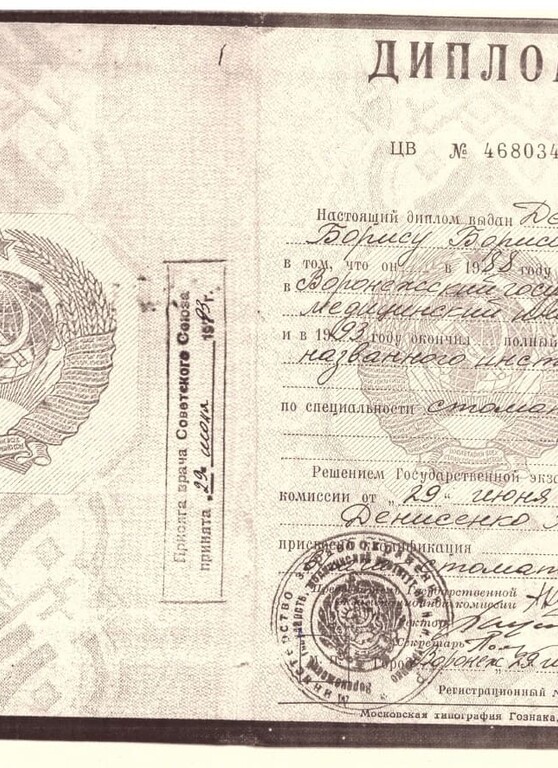 Присяга врача Советского Союза
принята „29" июня 1993 г.
ДИПЛО
ЦВ № 468034
Настоящий диплом выдан Де
Борису Борисо
в том, что он в 1988 году
в Воронежский госу
медицинский инс
и в 1993 году окончил полный
названного инст
по специальности стома
Решением Государственной экза
комиссии от „29" июня
Денисенко
присвоена квалификация
стомат
Председатель Государственной
экзаменационной комиссии
Ректор
Секретарь
Город Воронеж 29
Регистрационный №
Московская типография Гознака.
Министерство здравоохранения